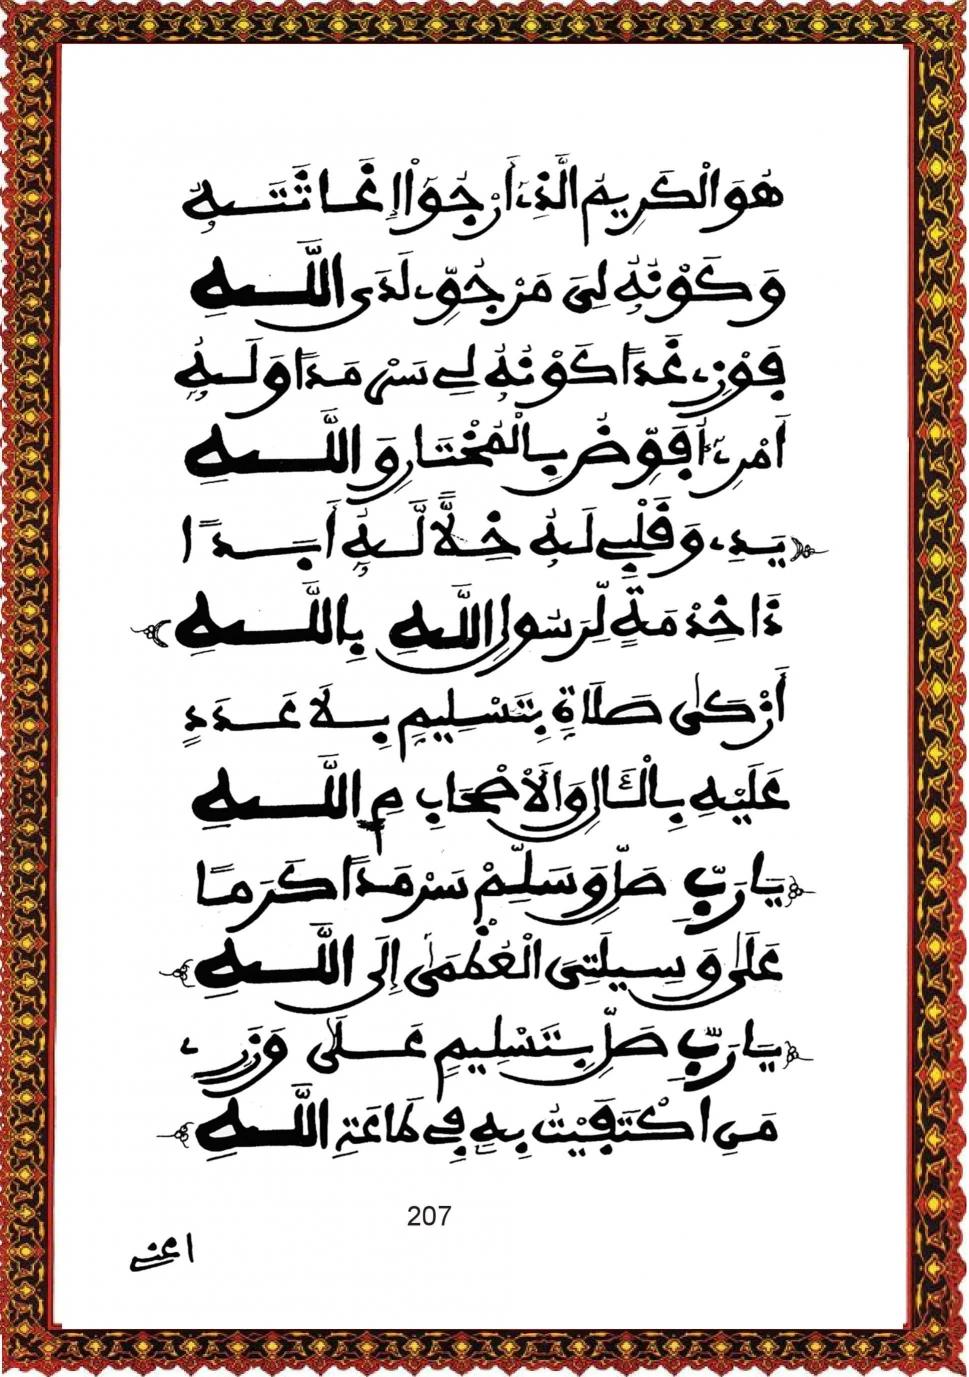 هُوَ الْكَرِيمُ الَّذِے أَرْجُواْ إِغَاثَتَهُ
وَكَوْنُهُ لِى مَرْجُوِّے لَدَى اللَّهِ
فَوْزِے غَدًا كَوْنُهُ لِے سَرْمَدًا وَلَهُ
أَمْرِے أُفَوِّضُ بِالْمُخْتَارِ وَاللَّهِ
يَدِے وَقَلْبِے لَهُ خِلًّا لَهُ أَبَدًا
ذَا خِدْمَةٍ لِّرَسُولِ اللَّهِ بِاللَّهِ
أَزْكَىٰ صَلَاةٍ بِتَسْلِيمٍ بِلَا عَدَدٍ
عَلَيْهِ بِالْـَٔالِ وَالْأَصْحَابِ مِ اللَّهِ
يَا رَبِّ صَلِّ وَسَلِّمْ سَرْمَدًا كَرَمًا
عَلَىٰ وَسِيلَتِىَ الْعُظْمَىٰ إِلَى اللَّهِ
يَا رَبِّ صَلِّ بِتَسْلِيمٍ عَلَىٰ وَزَرِے
مَنِ اكْتَفَيْتُ بِهِ فِے طَاعَةِ اللَّهِ
207